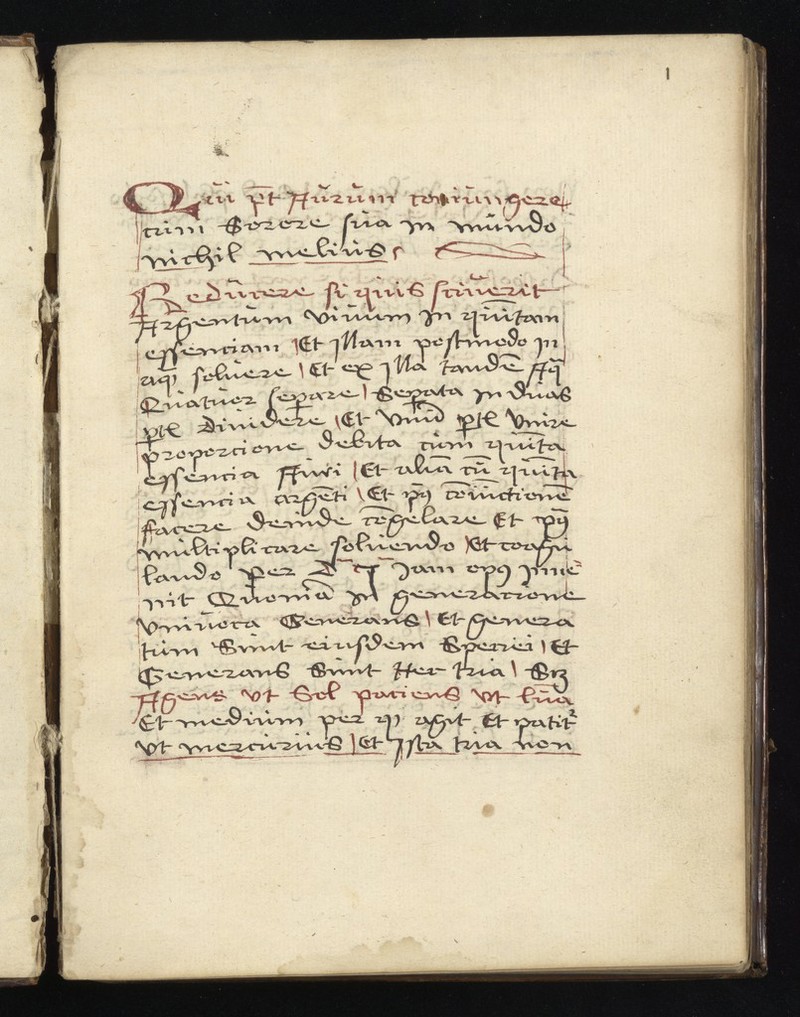 1
Qui pt Aurum coniungere
cum Sorore sua in mundo
nichil melius
Reducere si quis sciuerit
Argentum vivum in quītam
essenciam Et illam postmodo in
aq solvere Et ex illa tandē Aq
Quatuor separe Sepata in duas
ptes dividere Et Vnā ptē Vnire
proporcione debita cum quīta
essencia Auri Et aliā cū quīta
essencia argēti Et coniūctionē
facere deinde cōgelare Et
multiplicare solvendo Et coagu
lando per iam opus inve
nit Quoniā in generacione
vnivoca Generans Et genera
tum Sunt eiusdem Speciei Et
Generans Sunt Hec tria
Agens vt Sol paciens vt luna
Et medium per agit Et patit
vt mercurius Et Ista tria non